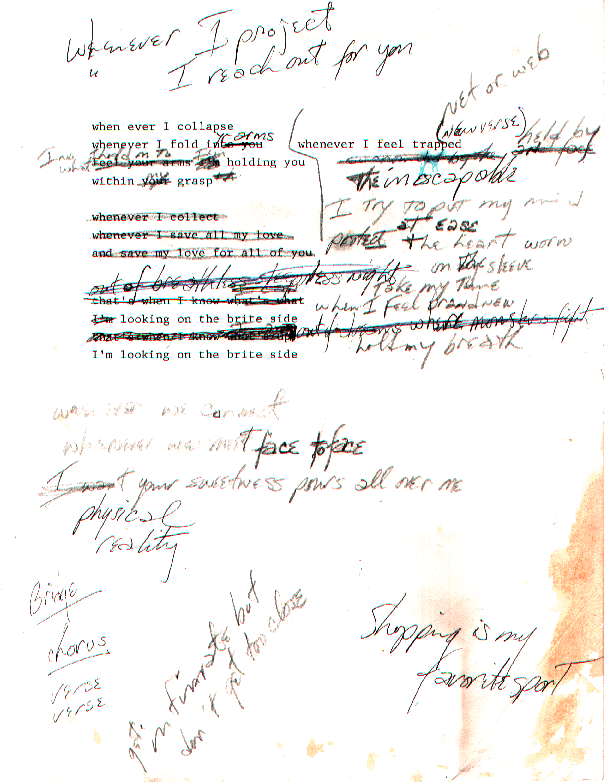 Whenever I project
" I reach out for you
net or web
when ever I collapse
(NEW VERSE)
arms
whenever I fold into you
whenever I feel trapped
held by
feel your arms I'm holding you
within your grasp
the inescapable
I try to put my mind
whenever I collect
at ease
whenever I save all my love
protect the heart worn
and save my love for all of you
on the sleeve
out of breath
night
Take my time
that's when I know what's what
when I feel brand new
I'm looking on the brite side
that's when I know what's
where monsters fight
hold my breath
I'm looking on the brite side
whenever we connect
whenever we meet face to face
I want your sweetness pours all over me
physical
reality
chorus
verse
verse
get intimate but
don't get too close
Shopping is my
favorite sport